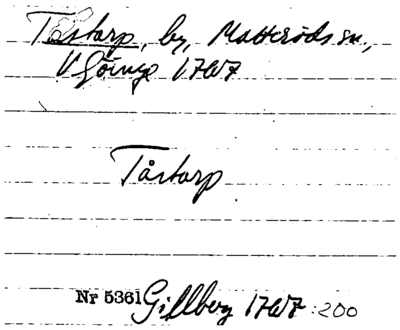 Tåstorp, by, Matteröds sn.,
V Göinge 1767
Tåstarp
Nr 5361 Gillberg 1767 :200